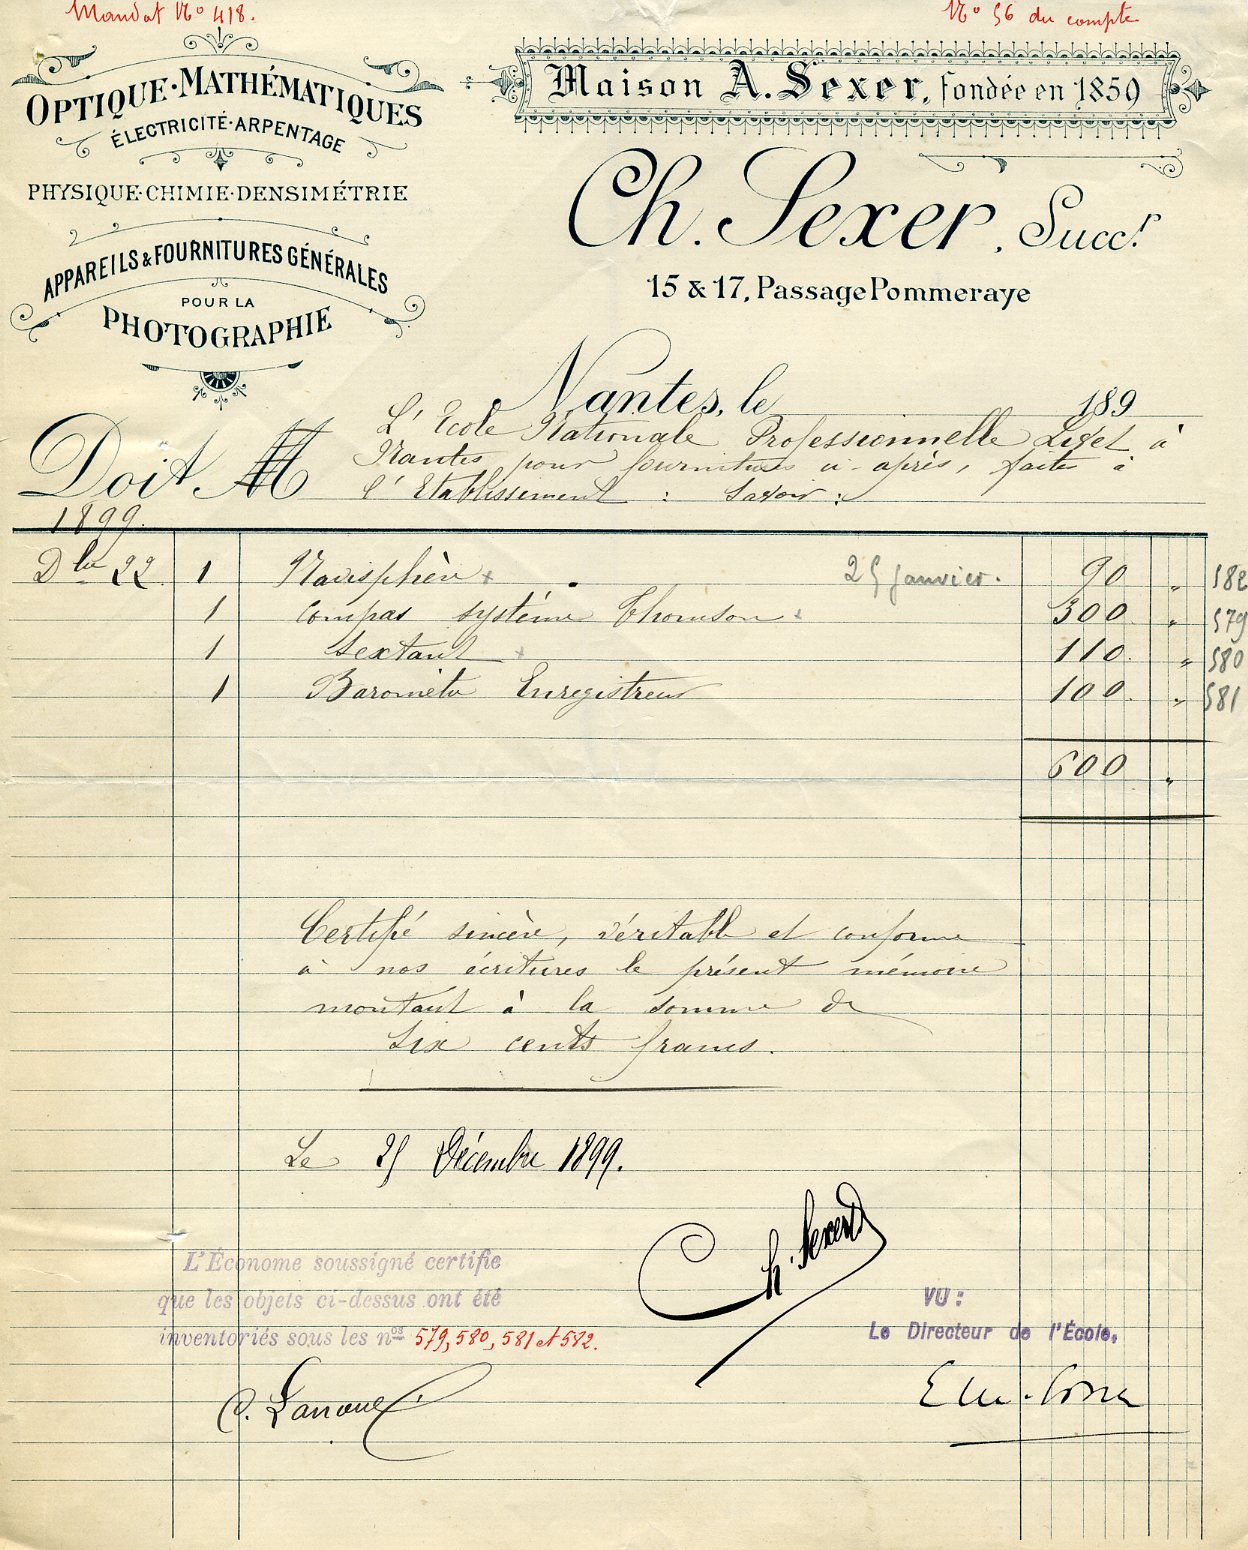 Mandat N° 418.
N° 56 du compte
OPTIQUE·MATHÉMATIQUES
ÉLECTRICITÉ·ARPENTAGE
PHYSIQUE·CHIMIE·DENSIMÉTRIE
APPAREILS & FOURNITURES GÉNÉRALES
POUR LA
PHOTOGRAPHIE
Maison A. Sexer, fondée en 1859
Ch. Sexer, Succr.
15 & 17, Passage Pommeraye
Nantes, le 189
Doit M L'Ecole Nationale Professionnelle Livet à
Nantes pour fournitures ci-après, faites à
l'Etablissement : Savoir :
1899.
Dbre 22. 1 Navisphère 25 janvier. 90 " 582
1 Compas système Thomson 300 " 579
1 Sextant 110 " 580
1 Baromètre Enregistreur 100 " 581
600 "
Certifié sincère, véritable et conforme
à nos écritures le présent mémoire
montant à la somme de
Six cents francs.
Le 25 Décembre 1899.
Ch. Sexer
L'Économe soussigné certifie
que les objets ci-dessus ont été
inventoriés sous les nos 579, 580, 581 et 582.
VU :
Le Directeur de l'École,